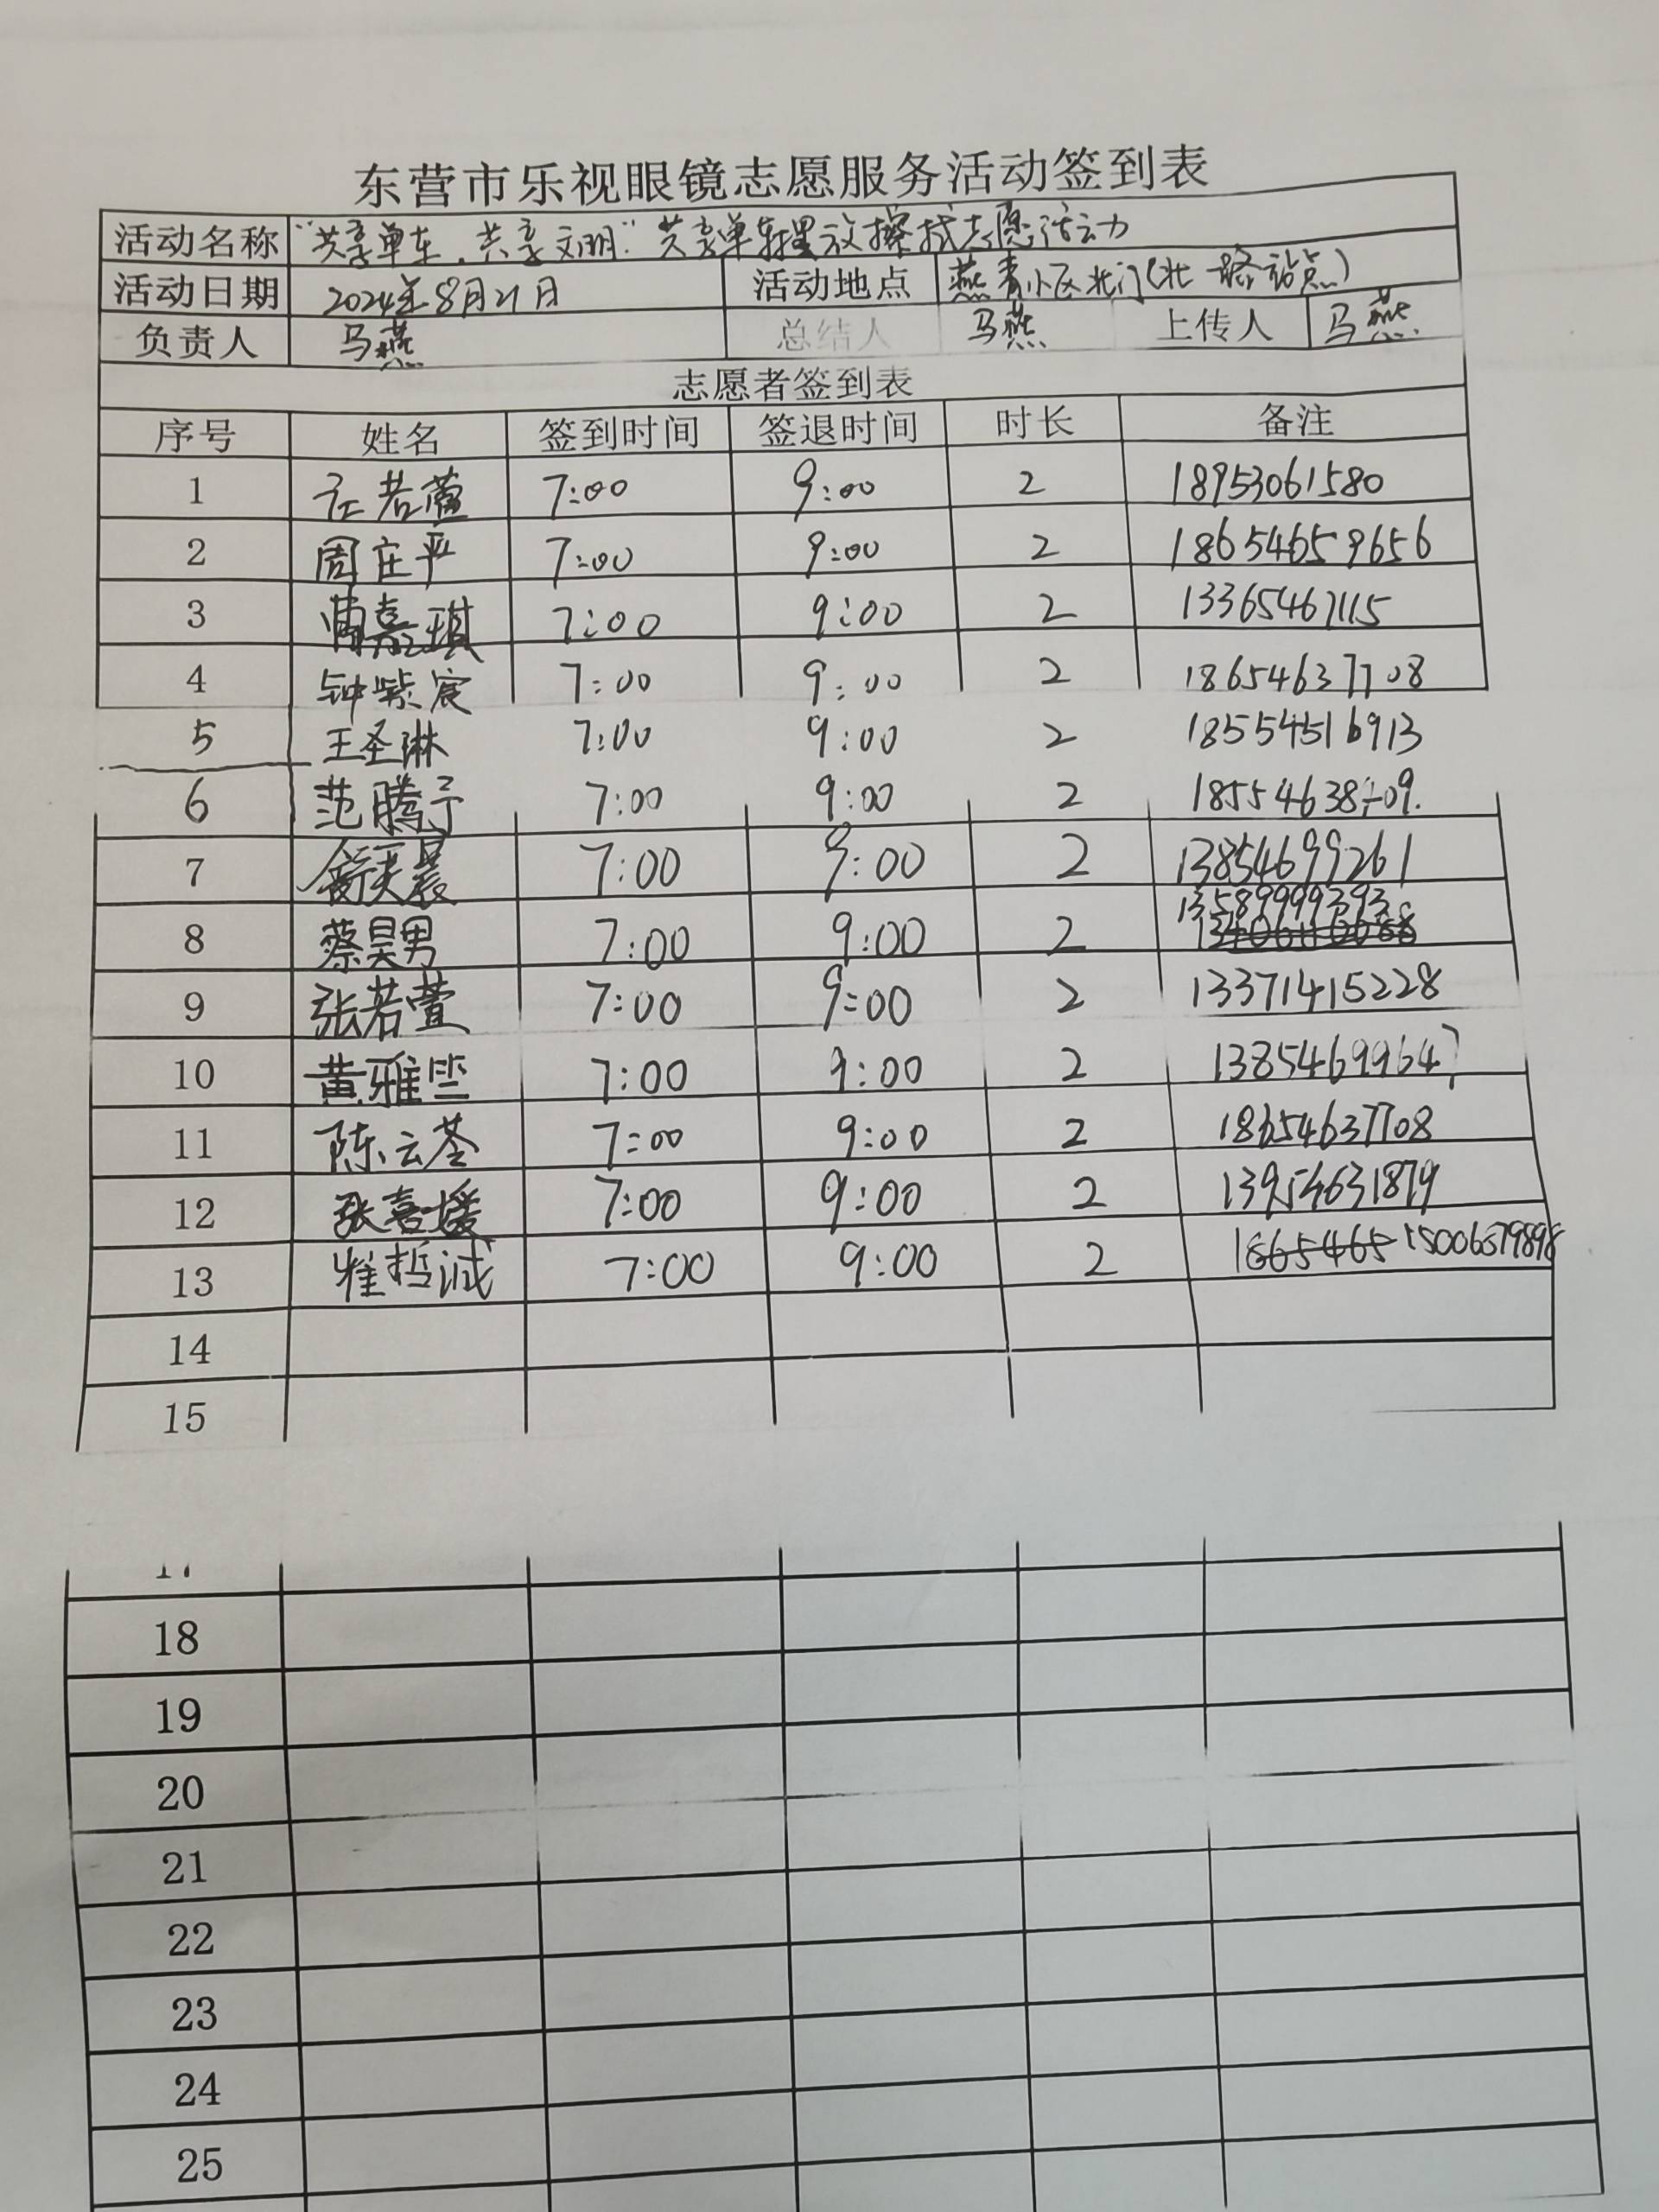 东营市乐视眼镜志愿服务活动签到表
活动名称 “共享单车,共享文明”共享单车摆放擦拭志愿活动
活动日期 2024年8月21日 活动地点 燕青小区北门(北一路站点)
负责人 马燕 总结人 马燕 上传人 马燕
志愿者签到表
序号 姓名 签到时间 签退时间 时长 备注
1 7:00 9:00 2 18953061580
2 周庄严 7:00 9:00 2 18654659656
3 曹嘉琪 7:00 9:00 2 13365467115
4 钟紫宸 7:00 9:00 2 18654637708
5 王圣琳 7:00 9:00 2 18554516913
6 范腾予 7:00 9:00 2
7 7:00 9:00 2 13854699261
8 蔡昊男 7:00 9:00 2 13589999393
9 张若萱 7:00 9:00 2 13371415228
10 黄雅坒 7:00 9:00 2 13854699647
11 陈云荃 7:00 9:00 2 18654637708
12 张喜媛 7:00 9:00 2 13954631879
13 崔哲诚 7:00 9:00 2 1865465 15006879898
14
15
18
19
20
21
22
23
24
25